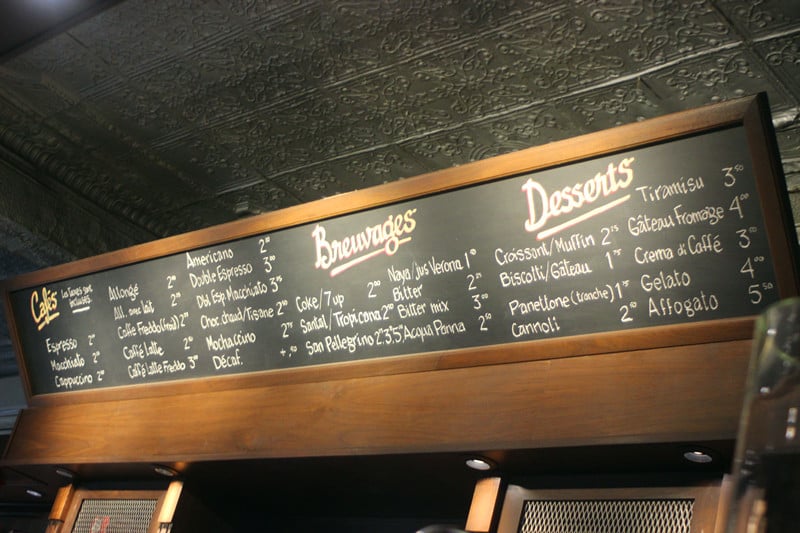 Cafés
Les Taxes sont
incluses
Espresso 2
Macchiato 2
Cappuccino 2
Allongé 2
All. avec lait 2
Caffè Freddo (froid) 2
Caffè Latte 2
Caffè Latte Freddo 3
Americano 2
Double Espresso 3
Dbl Esp Macchiato 3
Choc. chaud/Tisane 2
Mochaccino 2
Décaf.
Breuvages
Coke/7up 2
Santal/Tropicana 2
San Pellegrino
Naya/Jus Verona 1
Bitter 2
Bitter mix 3
Acqua Panna 2
Desserts
Croissant/Muffin 2
Biscotti/Gâteau 1
Panettone (tranche) 1
Cannoli 2
Tiramisu 3
Gâteau Fromage 4
Crema di Caffé 3
Gelato 4
Affogato 5